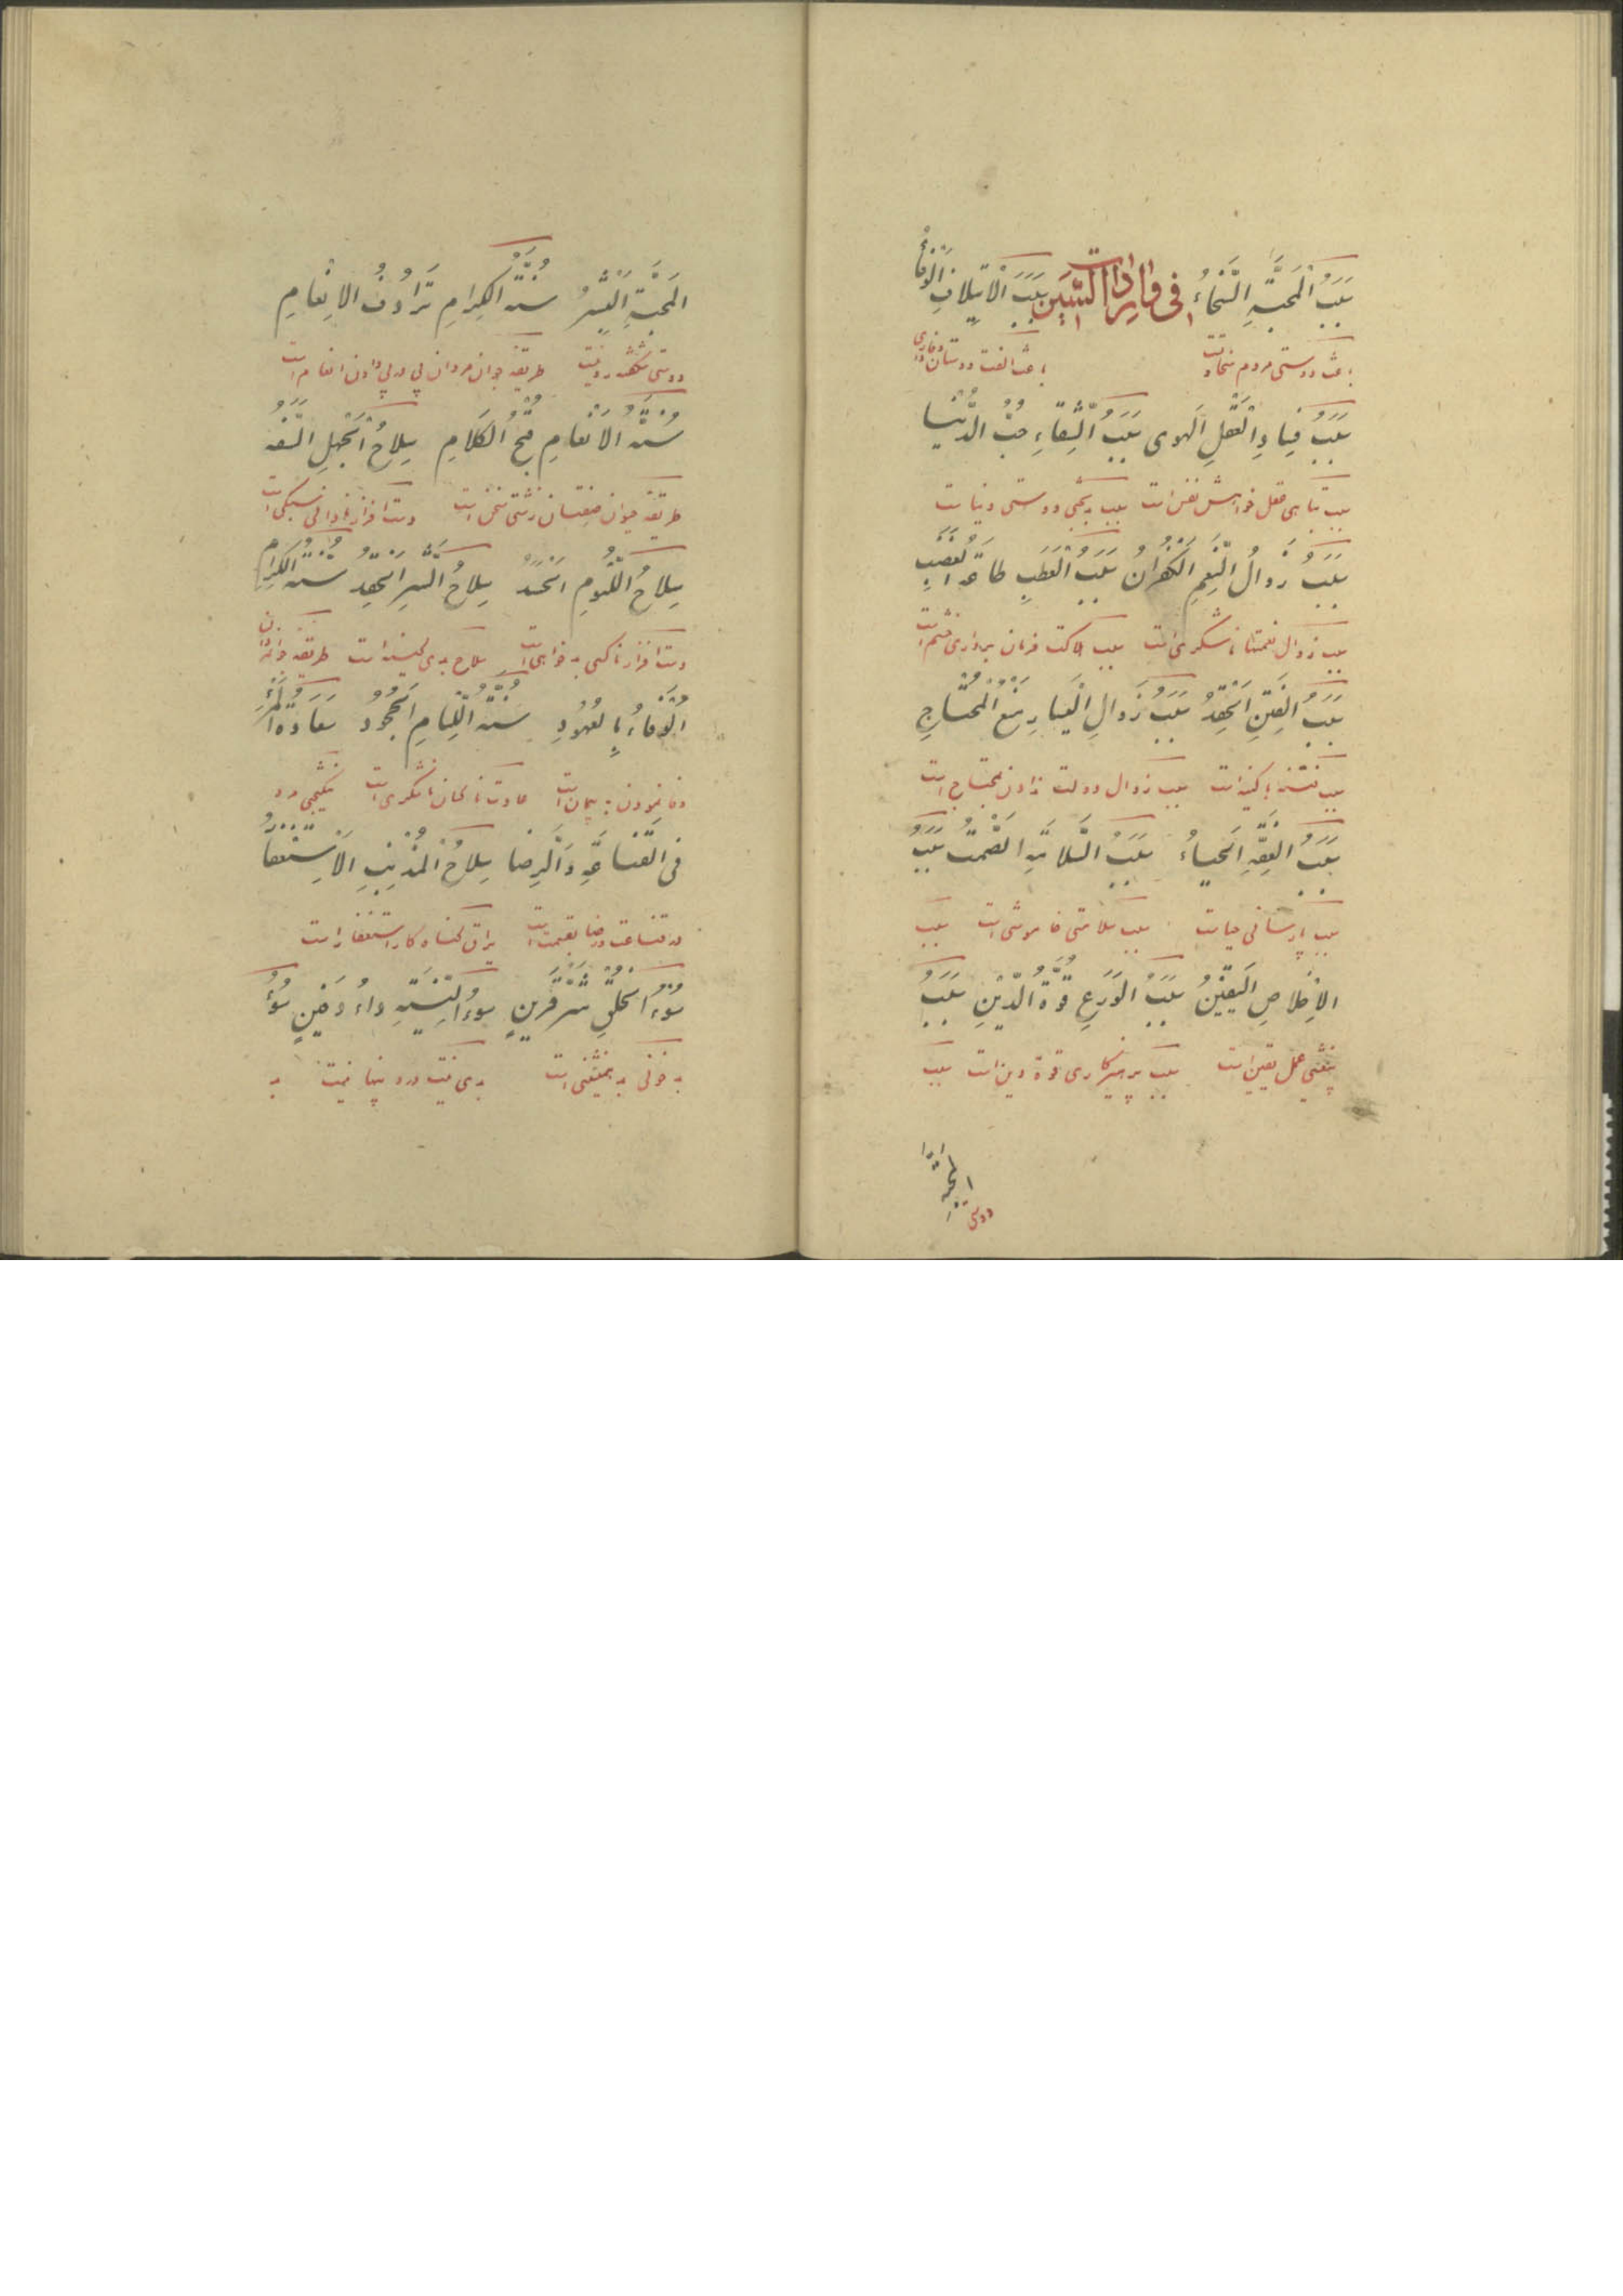 سَبَبُ الْمَحَبَّةِ السَّخَاءُ فی واردات السّین سَبَبُ الْاِیتِلَافِ الْوَفَاءُ
باعث دوستی مردم سخاوتست باعث الفت دوستان وفاداری
سَبَبُ فَسَادِ الْعَقْلِ الْهَوی سَبَبُ الشِّقَاءِ حُبُّ الدُّنْیَا
سبب تباهی عقل خواهش نفس است سبب بدبختی دوستی دنیاست
سَبَبُ زَوَالُ النِّعَمِ الْکُفْرَانُ سَبَبُ الْعَطَبِ طَاعَةُ الْغَضَبِ
سبب زوال نعمتها ناشکری است سبب هلاکت فرمان برداری خشم است
سَبَبُ الْفِتَنِ الْحِقْدُ سَبَبُ زَوَالِ الْیَسَارِ مَنْعُ الْمُحْتَاجِ
سبب فتنها کینه است سبب زوال دولت ندادن بمحتاج است
سَبَبُ الْعِفَّةِ الْحَیَاءُ سَبَبُ السَّلَامَةِ الصَّمْتُ سَبَبُ
سبب پارسائی حیاست سبب سلامتی خاموشی است سبب
الْاِخْلَاصِ الْیَقِیْنُ سَبَبُ الْوَرَعِ قُوَّةُ الدِّیْنِ سَبَبُ
عمل یقین است سبب پرهیزکاری قوة دین است سبب
المحبة
دوستی
الْمَحَبَّةِ الْبِشْرُ سُنَّةُ الْکِرَامِ تَرَادُفُ الْاِنْعَامِ
دوستی شکفته روئیست طریقه جوان مردان پی در پی دادن انعام است
سُنَّةُ الْاَنْعَامِ قُبْحُ الْکَلَامِ سِلَاحُ الْجَهْلِ السَّفَهُ
طریقه حیوان صفتان زشتی سخن است دست افزار نادانی سبکی است
سِلَاحُ اللُّؤمِ الْحَسَدُ سِلَاحُ الشَّرِ الْحِقْدُ سُنَّةُ الْکِرَامِ
دست افزار ناکسی بدخواهی است سلاح بدی کینه است طریقه
الْوَفَاءُ بِالْعُهُودِ سُنَّةُ اللِّئَامِ الْجُحُودُ سَعَادَةُ الْمَرْءِ
وفا نمودن به پیمان است عادت ناکسان ناشکری است نیکبختی مرد
فِی الْقَنَاعَةِ وَالرِّضَا سِلَاحُ الْمُذْنِبِ الْاِسْتِغْفَارُ
در قناعت و رضا بقسمت است یراق گناه کار استغفار است
سُوءُ الْخُلْقِ شَرُّ قَرِینٍ سُوءُ النِّیَّةِ دَاءٌ دَفِینٌ سُوءُ
بدخوئی بد همنشینی است بدی نیت درد پنهانیست بد